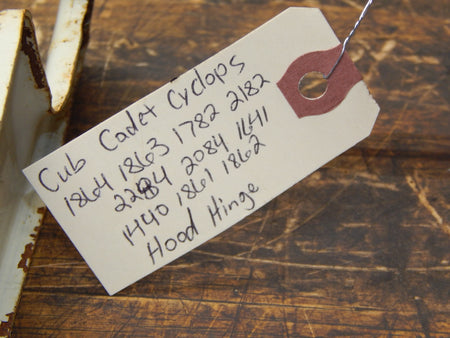 Cub Cadet Cyclops
1864 1863 1782 2182
2284 2084 1641
1440 1861 1862
Hood Hinge